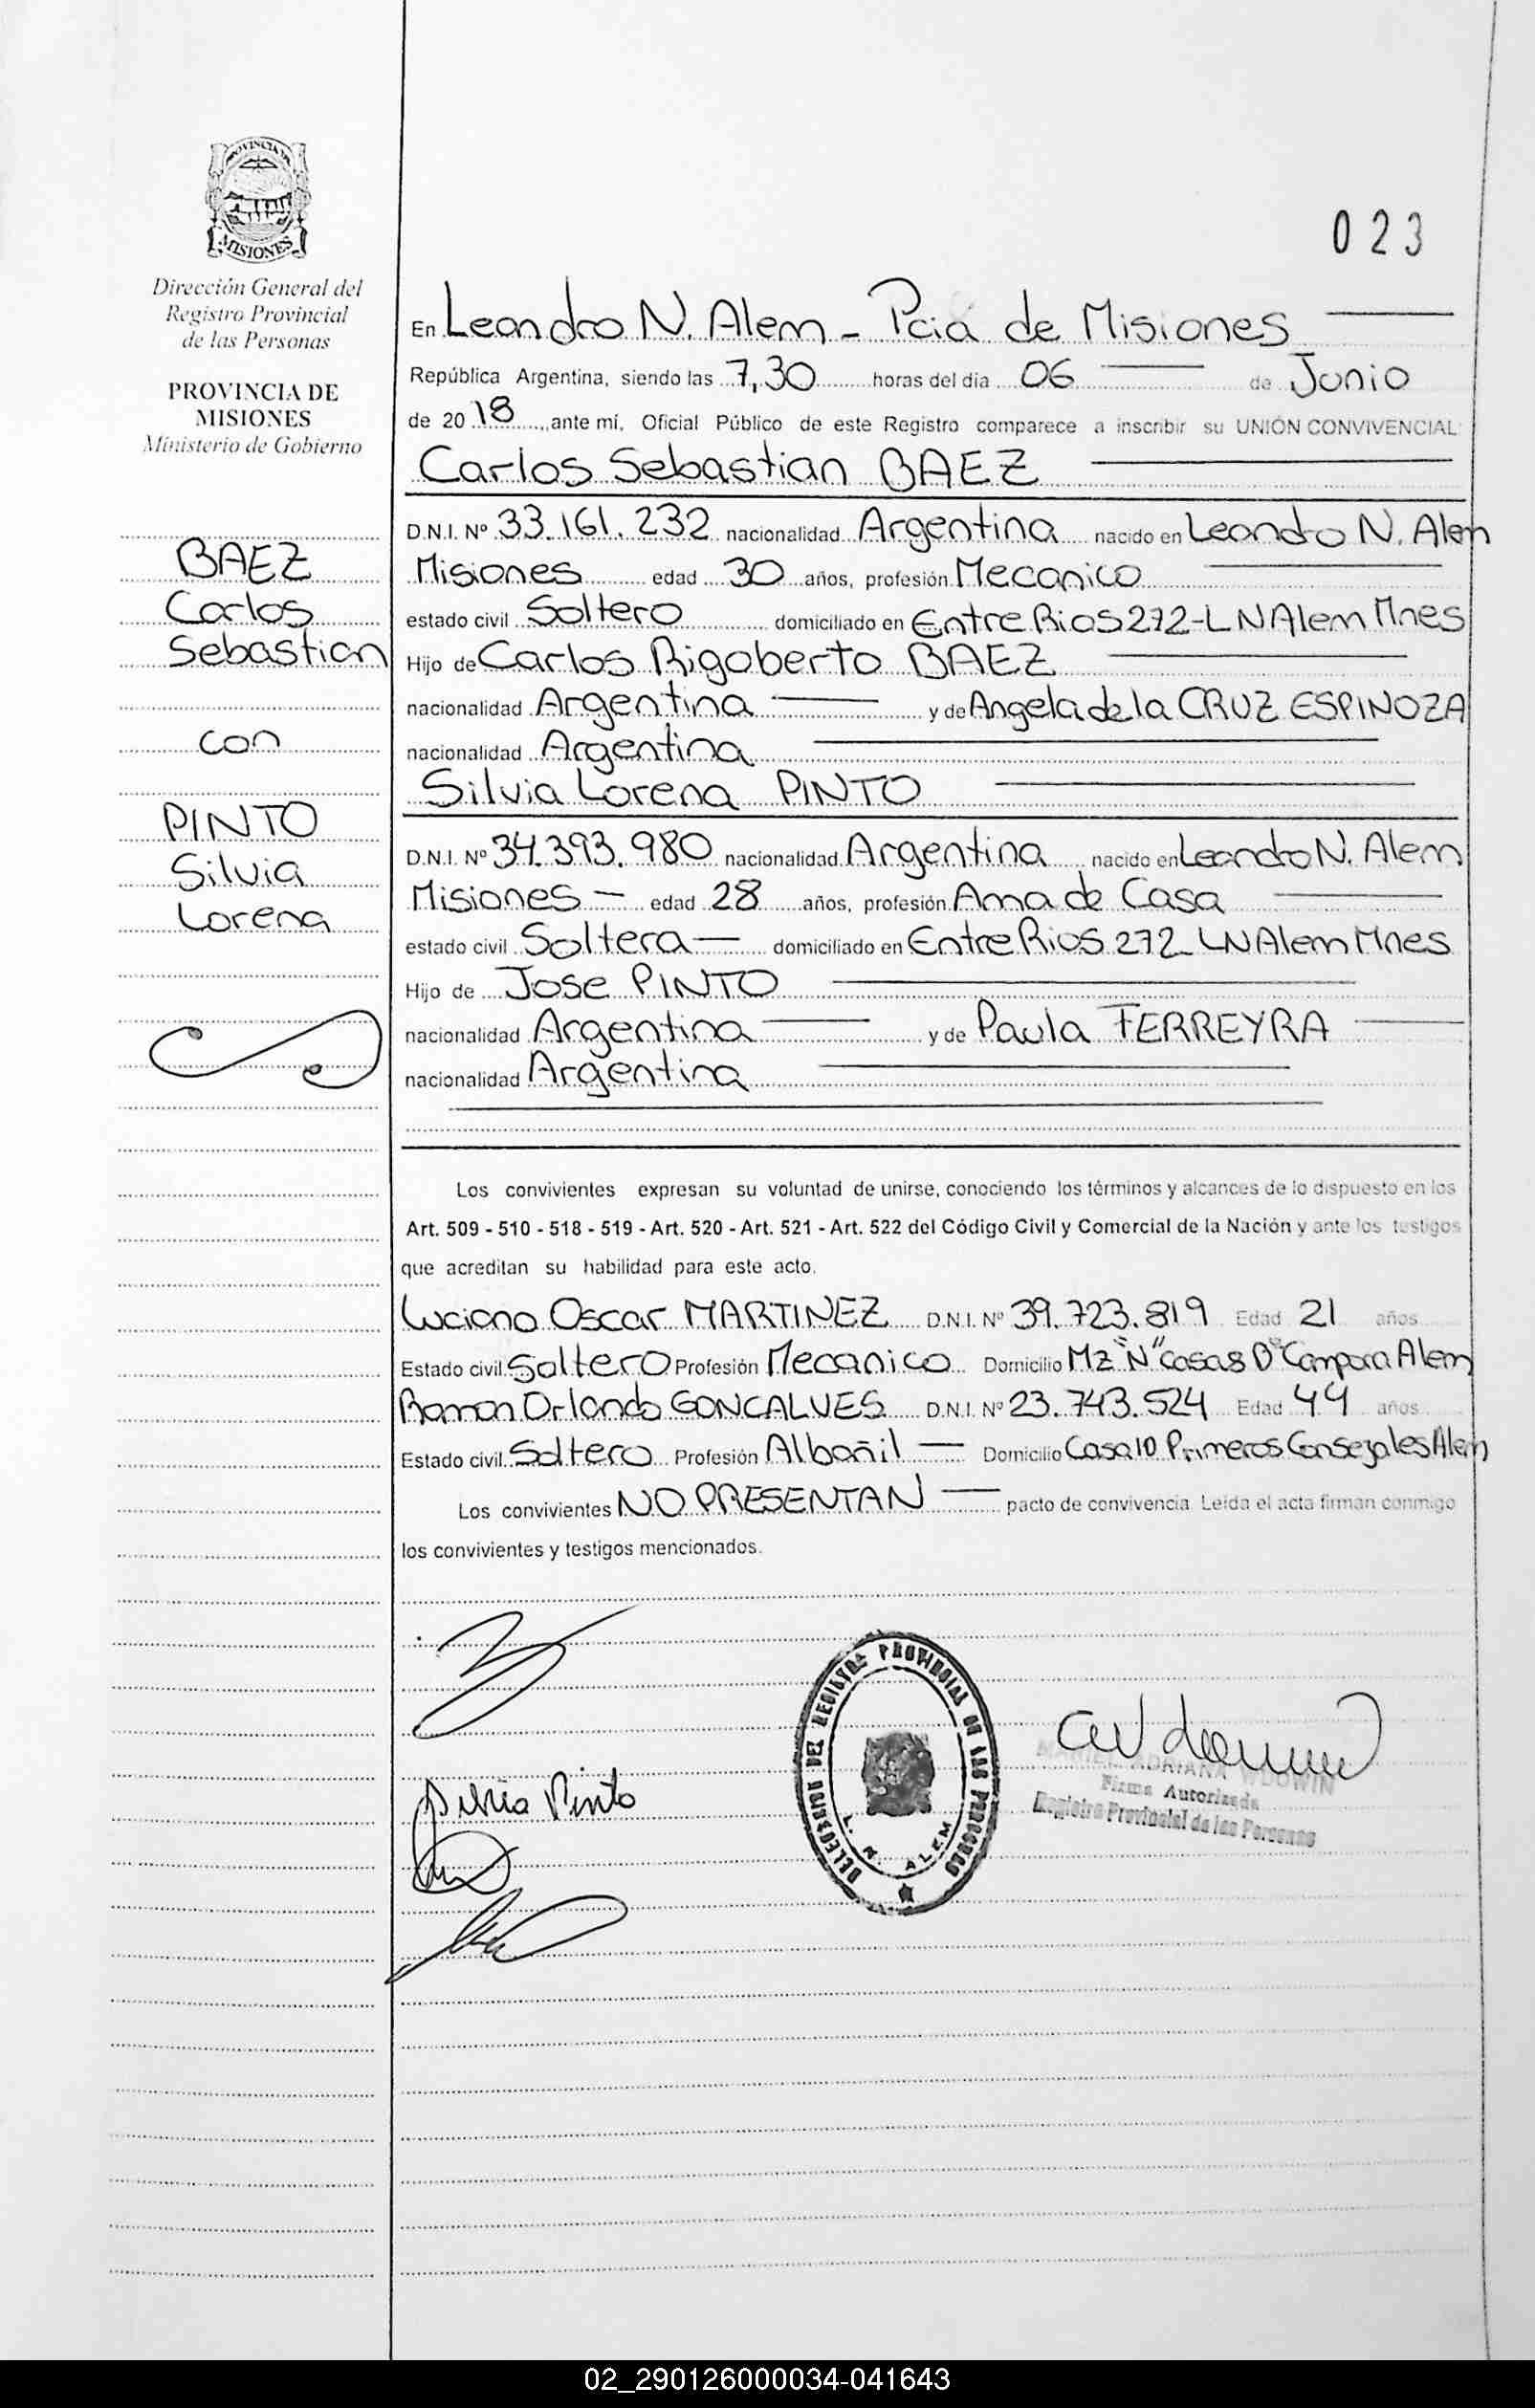 PROVINCIA DE
MISIONES
Dirección General del
Registro Provincial
de las Personas
PROVINCIA DE
MISIONES
Ministerio de Gobierno
BAEZ
Carlos
Sebastian
con
PINTO
Silvia
Lorena
023
En Leandro N. Alem - Pcia de Misiones
República Argentina, siendo las 7,30 horas del día 06 de Junio
de 2018 ante mí, Oficial Público de este Registro comparece a inscribir su UNIÓN CONVIVENCIAL:
Carlos Sebastian BAEZ
D.N.I. Nº 33.161.232 nacionalidad Argentina nacido en Leandro N. Alem
Misiones edad 30 años, profesión Mecanico
estado civil Soltero domiciliado en Entre Rios 272-L N Alem Mnes
Hijo de Carlos Rigoberto BAEZ
nacionalidad Argentina y de Angela de la CRUZ ESPINOZA
nacionalidad Argentina
Silvia Lorena PINTO
D.N.I. Nº 34.393.980 nacionalidad Argentina nacido en Leandro N. Alem
Misiones - edad 28 años, profesión Ama de Casa
estado civil Soltera - domiciliado en Entre Rios 272 - LN Alem Mnes
Hijo de Jose PINTO
nacionalidad Argentina y de Paula FERREYRA
nacionalidad Argentina
Los convivientes expresan su voluntad de unirse, conociendo los términos y alcances de lo dispuesto en los
Art. 509 - 510 - 518 - 519 - Art. 520 - Art. 521 - Art. 522 del Código Civil y Comercial de la Nación y ante los testigos
que acreditan su habilidad para este acto.
Luciano Oscar MARTINEZ D.N.I. Nº 39.723.819 Edad 21 años
Estado civil Soltero Profesión Mecanico Domicilio Mz "N" Casa 8 Bº Campora Alem
Ramon Orlando GONCALVES D.N.I. Nº 23.743.524 Edad 44 años
Estado civil Soltero Profesión Albañil - Domicilio Casa 10 Primeros Consejales Alem
Los convivientes NO PRESENTAN - pacto de convivencia Leída el acta firman conmigo
los convivientes y testigos mencionados.
Silvia Pinto
DELEGACION DEL REGISTRO PROVINCIAL DE LAS PERSONAS
L. N. ALEM
MARIEL ADRIANA WDOWIN
Firma Autorizada
Registro Provincial de las Personas
02_290126000034-041643